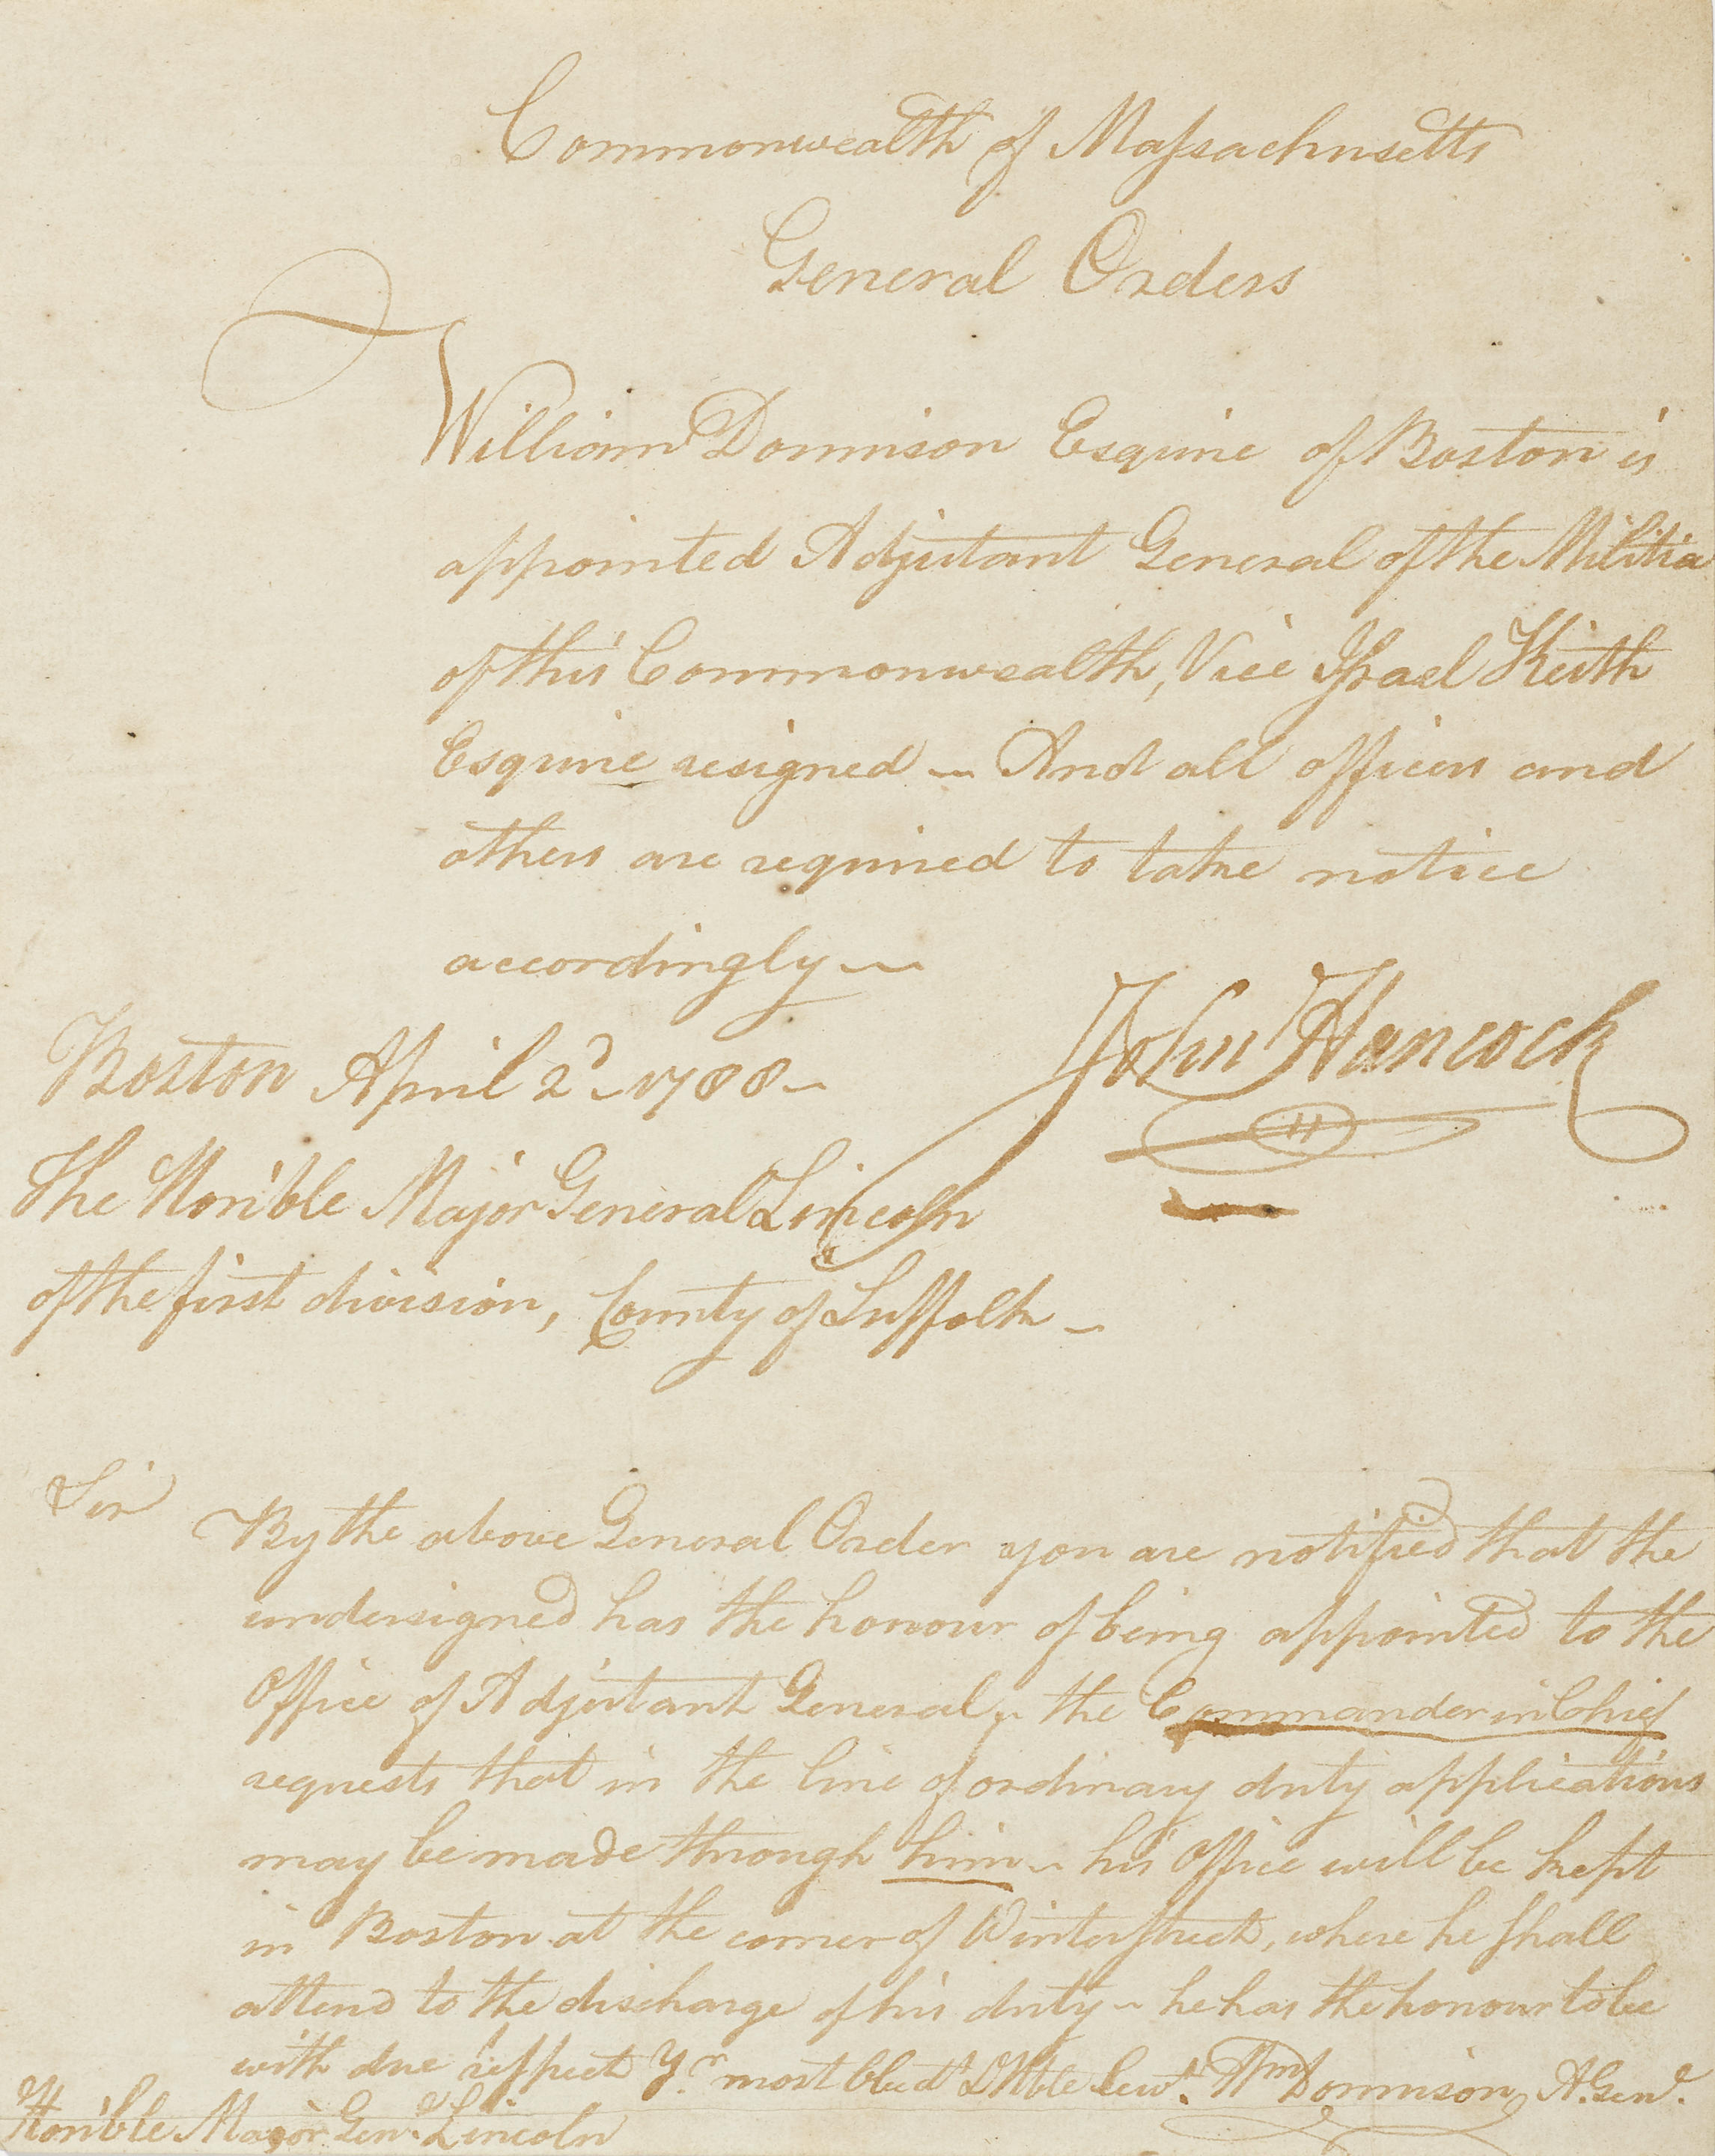 Commonwealth of Massachusetts
General Orders
William Donnison Esquire of Boston is
appointed Adjutant General of the Militia
of this Commonwealth, Vice Israel Keith
Esquire resigned — And all officers and
others are required to take notice
accordingly —
John Hancock
Boston April 2d 1788 —
The Hon'ble Major General Lincoln
of the first division, County of Suffolk —
Sir
By the above General Order you are notified that the
undersigned has the honour of being appointed to the
Office of Adjutant General, the Commander in Chief
requests that in the line of ordinary duty applications
may be made through him — his Office will be kept
in Boston at the corner of Winter street, where he shall
attend to the discharge of his duty — he has the honour to be
with due respect Yr. most Obedt & Hble Servt. Wm Donnison A. Genl.
Hon'ble Major Genl. Lincoln